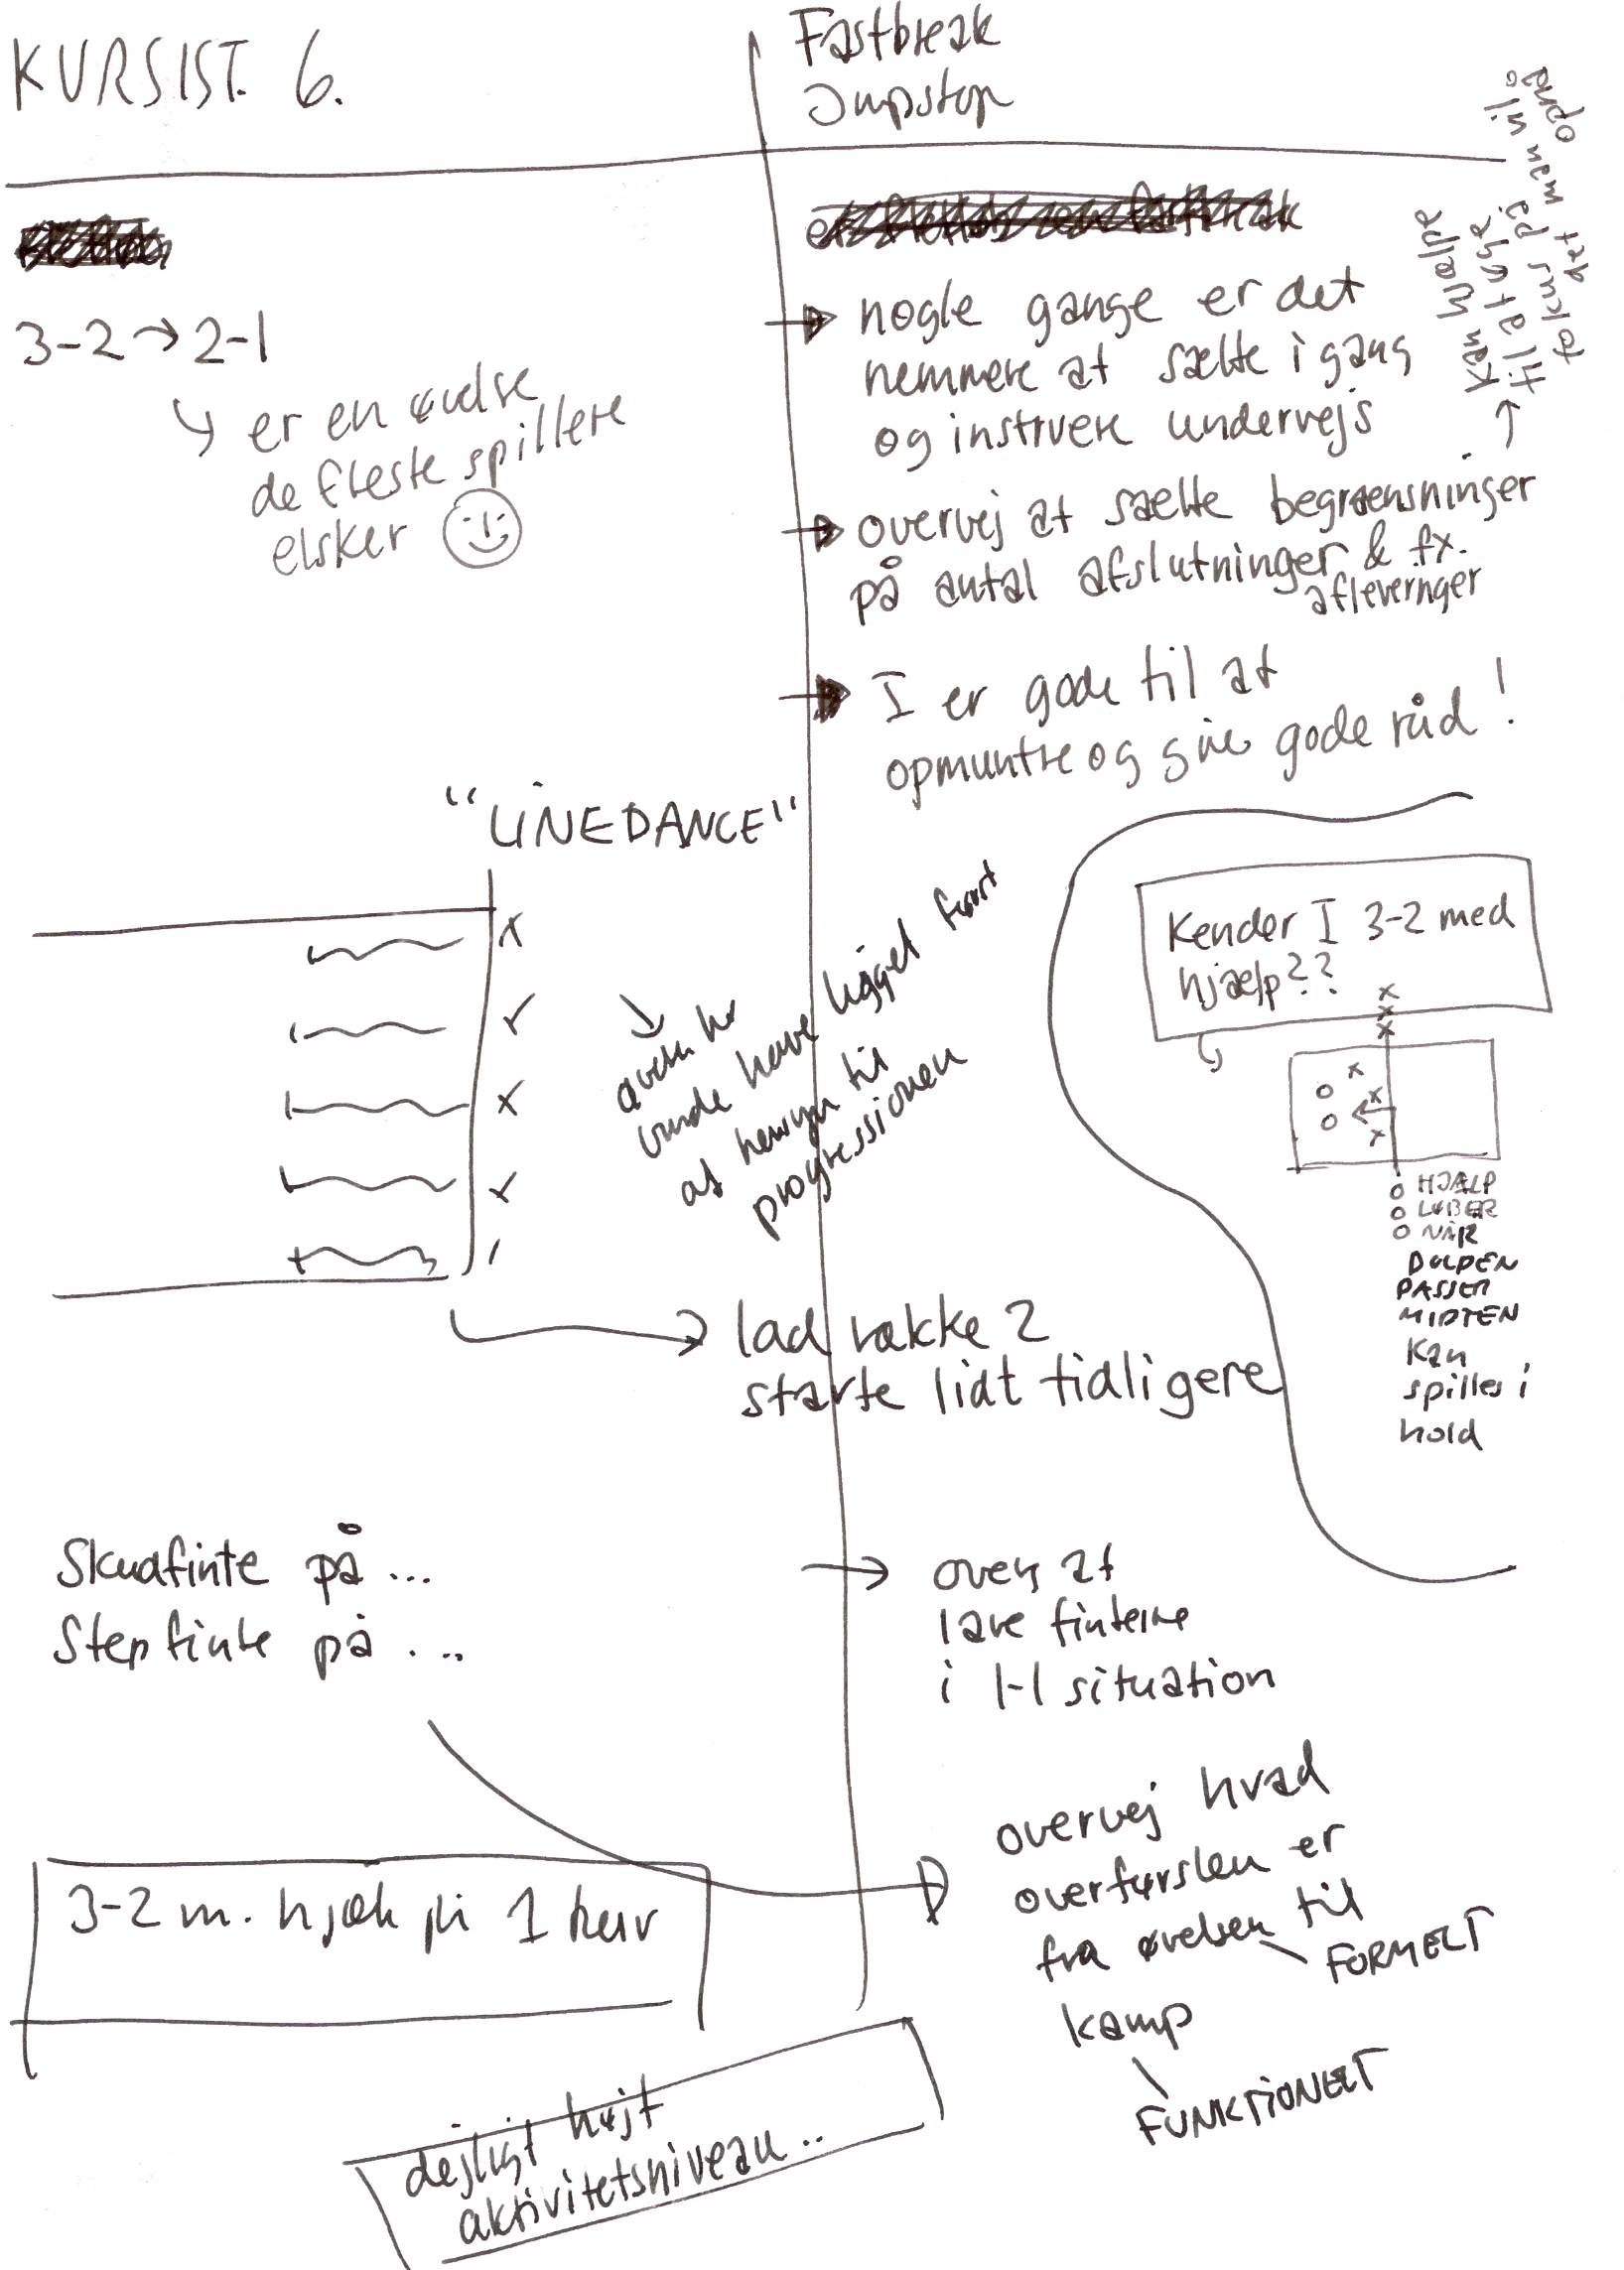 KURSIST. 6.
Fastbreak
Jumpstop
3-2 → 2-1
er en øvelse
de fleste spillere
elsker
nogle gange er det
nemmere at sætte i gang
og instruere undervejs
overvej at sætte begrænsninger
på antal afslutninger & fx.
afleveringer
kan hjælpe
til at øge
fokus på
det man vil
opnå
I er gode til at
opmuntre og give gode råd!
"LINEDANCE"
X
X
øvelsen
burde have ligget først
af hensyn til
progressionen
lad række 2
starte lidt tidligere
Kender I 3-2 med
hjælp??
x
x
x
x
o x
o x
o HJÆLP
o LØBER
o NÅR
BOLDEN
PASSER
MIDTEN
Kan
spilles i
hold
Skudfinte på ...
Step finte på ...
overvej at
lave finterne
i 1-1 situation
overvej hvad
overførslen er
fra øvelsen til
FORMELT
kamp
FUNKTIONELT
3-2 m. hjælp på 1 kurv
dejligt højt
aktivitetsniveau..